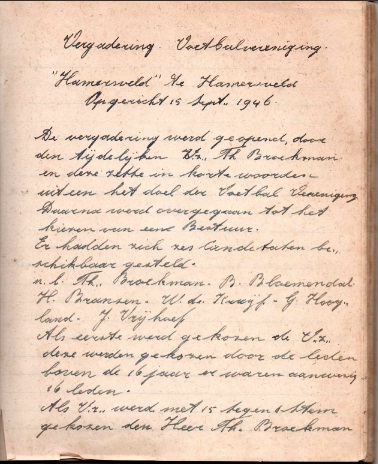 Vergadering. Voetbalvereniging.
"Hamersveld" te Hamersveld
Opgericht 15 Sept. 1946.
De vergadering werd geopend, door
den tijdelijken Vz., Th. Broekman
en deze zette in korte woorden
uiteen het doel der Voetbal Vereniging
Daarna werd overgegaan tot het
kiezen van een Bestuur.
Er hadden zich zes Candidaten be-
schikbaar gesteld.
n.l. Th. Broekman. B. Bloemendal
H. Bransen. W. de Kruijf. G. Hooy-
land. J. Vrijhoef
Als eerste werd gekozen de Vz.,
deze werden gekozen door de leden
boven de 16 jaar er waren aanwezig
16 leden.
Als Vz. werd met 15 tegen 1 stem
gekozen den Heer Th. Broekman